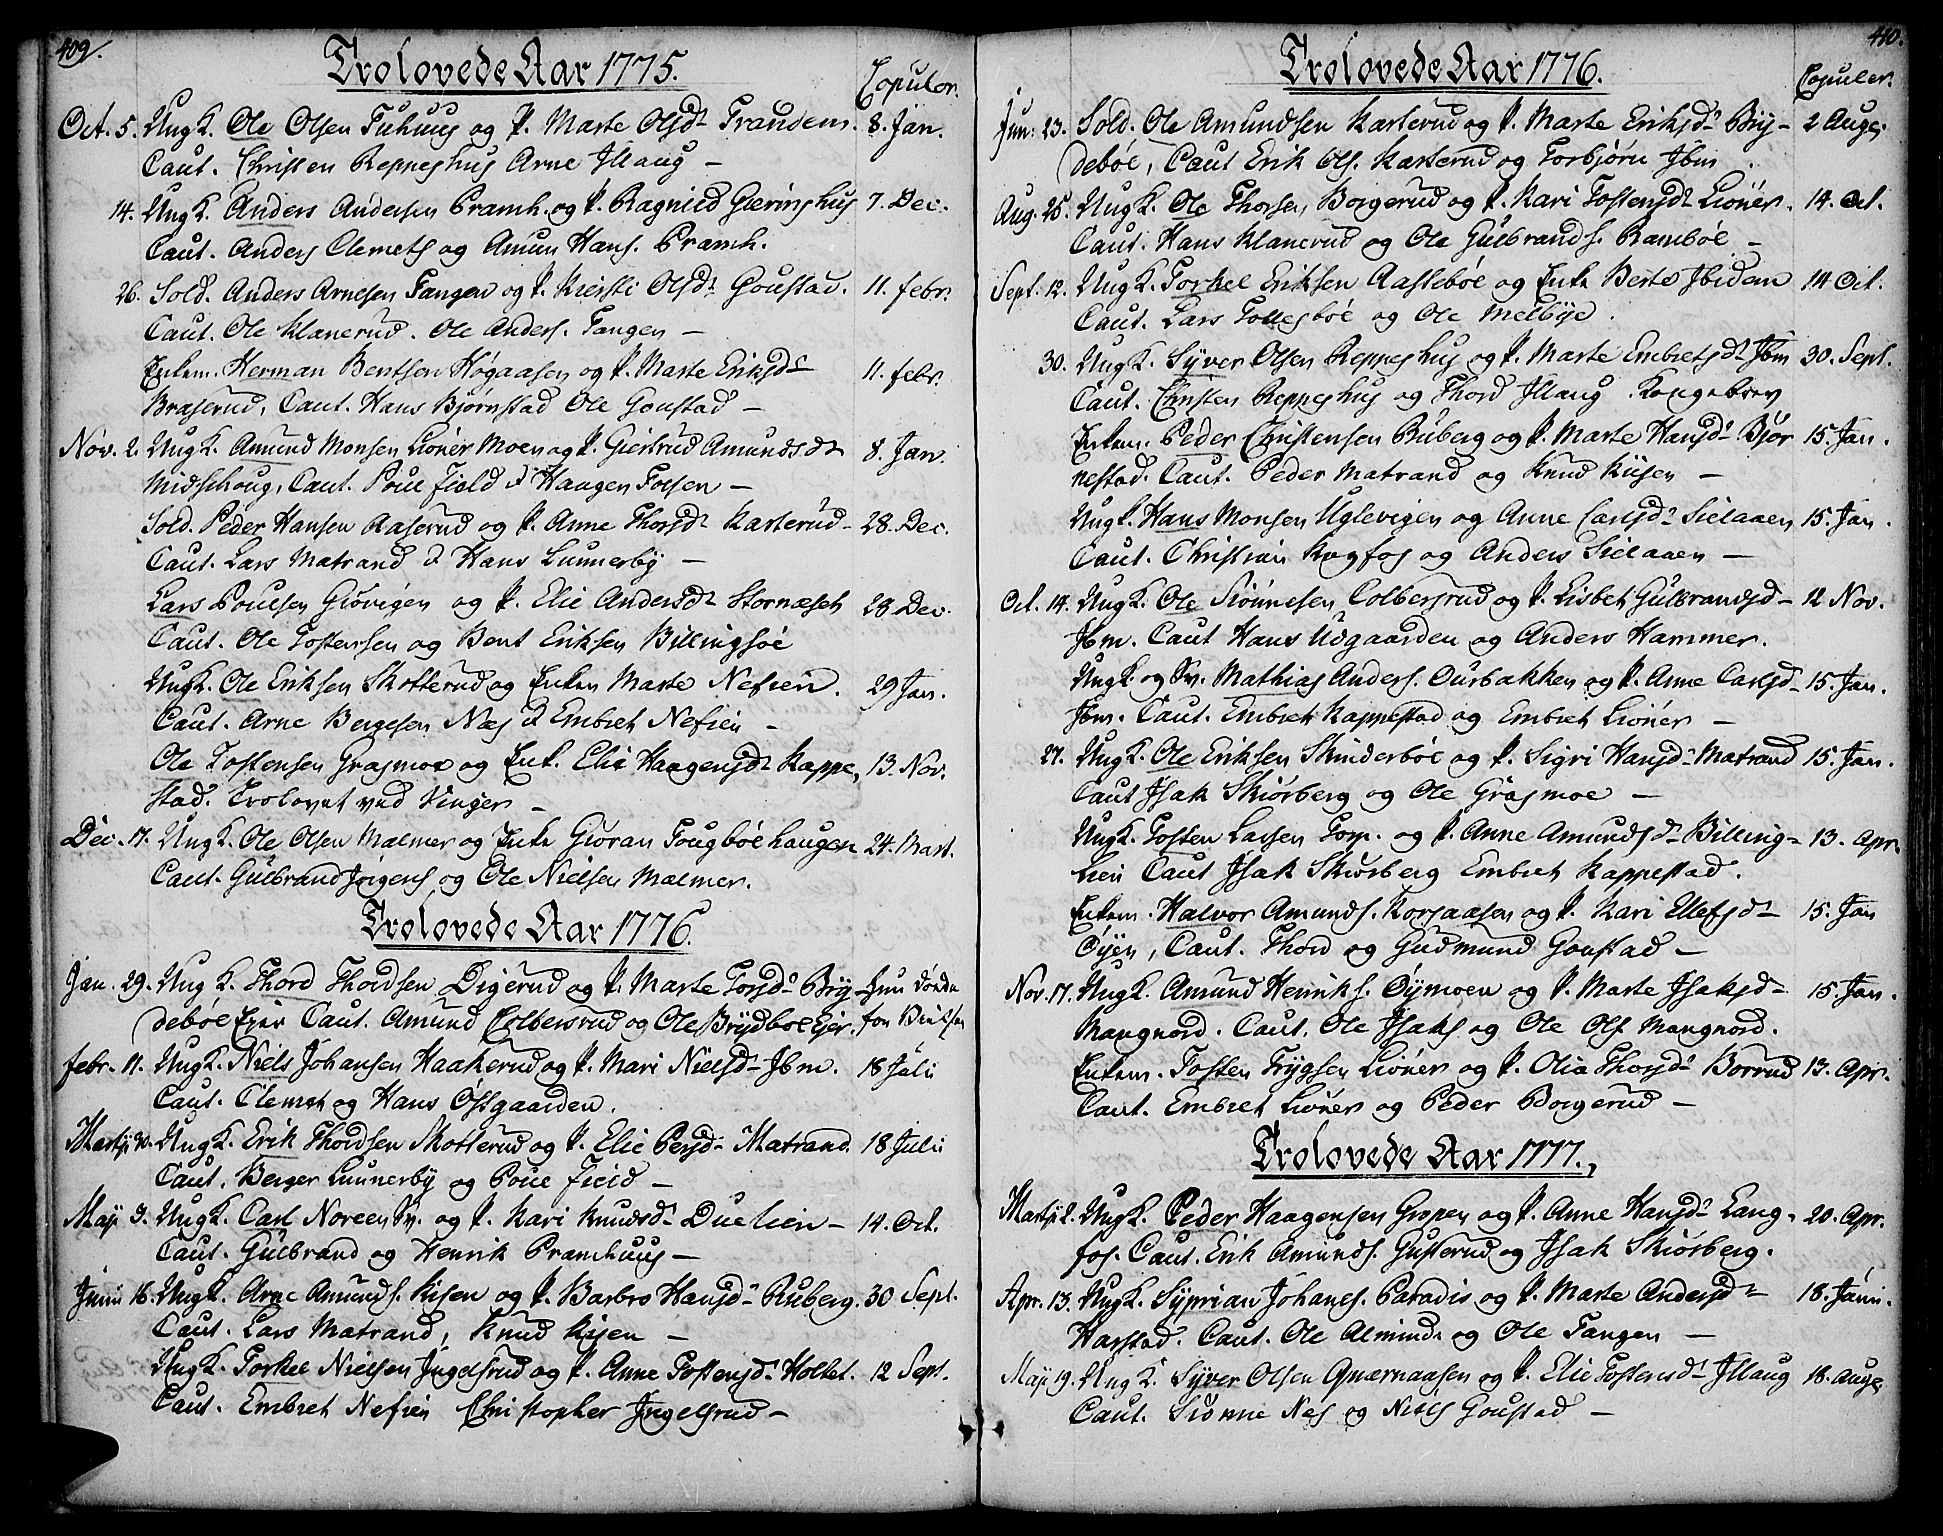 409.
Trolovede Aar 1775.
Copuler.
Oct. 5. Ung K. Ole Olsen Tuhuus og P. Marte Olsdr Trandem. 8. Jan.
Caut. Christen Reppeshus Arne Illaug —
14. Ung K. Anders Andersen Pramh. og P. Ragnild Gieringhus 7. Dec.
Caut. Anders Clemets og Amun Hans. Pramh.
26. Sold. Anders Arnesen Tangen og P. Kiersti Olsdr Goustad. 11. febr.
Caut. Ole Klanerud. Ole Anders. Tangen —
Enkem. Herman Bentsen Høgaasen og P. Marte Eriksdr 11. febr.
Braserud, Caut. Hans Bjørnstad Ole Goustad —
Nov. 2. Ung K. Amund Monsen Lioner Moen og P. Giertrud Amundsdr 8. Jan.
Midschoug, Caut. Poue Field & Haagen Fossen —
Sold. Peder Hansen Aaserud og P. Anne Thorsdr Karterud 28. Dec.
Caut. Lars Matrand & Hans Lunnerby —
Lars Poulsen Giøvigen og P. Elie Andersdr Stornæset 28. Dec.
Caut. Ole Tostensen og Bent Eriksen Billingsøe
Ung K. Ole Eriksen Skotterud og Enken Marte Nefien. 29 Jan.
Caut. Arne Bergesen Næs & Embret Nefien —
Ole Tostensen Grasmoe og Enk. Elie Haagensdr Kappe, 13. Nov.
stad. Trolovet ved Vinger —
Dec. 17. Ung K. Ole Olsen Malmer og Enke Giøran Tougbøehaugen 24. Mart.
Caut. Gulbrand Jørgens og Ole Nielsen Malmer.
Trolovede Aar 1776.
Jan. 29. Ung K. Thord Thordsen Digerud og P. Marte Torsdr Bry
debøe Eier Caut. Amund Colbersrud og Ole Brydbøe Ejer.
febr. 11. Ung K. Niels Johansen Haakerud og P. Mari Nielsdr Ibm. 18 Juli
Caut. Clemet og Hans Østgaarden.
Martji 30. Ung K. Erik Thordsen Skotterud og P. Elie Persdr Matrand. 18 Julii
Caut. Berger Lunnerby og Poue Field —
Maji 9. Ung K. Carl Noreen Sv. og P. Kari Knudsdr Duelien — 14. Oct.
Caut. Gulbrand og Henrik Pramhuus —
Junii 16. Ung K. Arne Amunds. Kisen og P. Barbro Hansdr Ruberg. 30 Sept.
Caut. Lars Matrand, Knud Kisen —
Ung K. Torkel Nielsen Ingelsrud og P. Anne Tostensdr Holtet. 12 Sept.
Caut. Embret Nefien Christopher Ingelsrud —
410.
Trolovede Aar 1776.
Copuler.
Jun: 23. Sold. Ole Amundsen Karterud og P. Marte Eriksdr Bry- 2 Aug.
debøe, Caut Erik Ols. Karterud og Torbjørn Ibm.
Aug. 25. Ung K. Ole Thorsen Borgerud og P. Kari Tostensdr Lioner. 14. Oct.
Caut. Hans Klanerud og Ole Gulbrands. Rambøe —
Sept. 12. Ung K. Torkel Eriksen Aaslebøe og Enke Berte Ibidem 14 Oct.
Caut. Lars Tollesbøe og Ole Melbye.
30. Ung K. Syver Olsen Reppeshus og P. Marte Embretsdr Ibm 30. Sept.
Caut. Christen Reppeshus og Thord Illaug. Kongebrev
Enkem. Peder Christensen Ruberg og P. Marte Hansdr Bjør 15. Jan.
nestad. Caut. Peder Matrand og Knud Kiisen —
Ung K. Hans Monsen Uglevigen og Anne Carlsdr Sielaaen 15. Jan.
Caut. Christian Kogfos og Anders Sielaaen —
Oct. 14. Ung K. Ole Siønnesen Colbersrud og P. Lisbet Gulbrandsdr 12 Nov.
Ibm. Caut Hans Udgaarden og Anders Hammer.
Ung K og Sv. Mathias Anders. Ourbakken og P. Anne Carlsdr 15. Jan.
Ibm. Caut. Embret Kappestad og Embret Lioner —
27. Ung K. Ole Eriksen Skinderbøe og P. Sigri Hansdr Matrand 15. Jan.
Caut Isak Skiørberg og Ole Grasmoe —
Ung K. Tosten Larsen Torp. og P. Anne Amundsdr Billing- 13. Apr.
lien Caut Isak Skiørberg Embret Kappestad.
Enkem. Halvor Amunds. Korsaasen og P. Kari Ellefsdr 15. Jan
Øyen, Caut. Thord og Gudmund Goustad —
Nov. 17. Ung K. Amund Henriks. Øymoen og P. Marte Isaksdr 15. Jan.
Mangnord. Caut. Ole Isaks og Ole Ols Mangnord.
Enkem. Tosten Trygsen Lioner og P. Olia Thorsdr Borrud 13. Apr.
Caut. Embret Lioner og Peder Borgerud —
Trolovede Aar 1777.
Martji 2. Ung K. Peder Haagensen Gropen og P. Anne Hansdr Lang- 20. Apr.
fos. Caut. Erik Amunds. Gusterud og Isak Skiørberg.
Apr. 13. Ung K. Syprian Johanes. Paradis og P. Marte Andersdr 18. Juni.
Harstad. Caut. Ole Alminde og Ole Tangen —
Maji 19. Ung K. Syver Olsen Qværnaasen og P. Elie Tostensdr Illaug 18. Aug.
Caut. Siønne Nes og Niels Goustad —